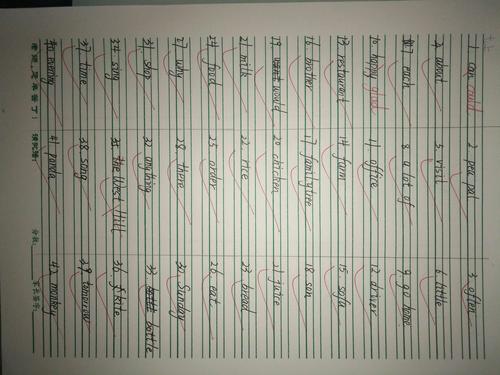 1. can could 2. pea pal 3. often
4. about 5. visit 6. little
7. each 8. a lot of 9. go home
10. happy glad 11. office 12. driver
13. restaurant 14. farm 15. sofa
16. brother 17. family tree 18. son
19. would 20. chicken 21. juice
21. milk 22. rice 23. bread
24. food 25. order 26. eat
27. why 28. there 30. Sunday
31. shop 32. anything 33. bottle
34. sing 35. the West Hill 36. kite
37. time 38. song 39. tomorrow
40. evening 41. panda 42. monkey
家长签字: